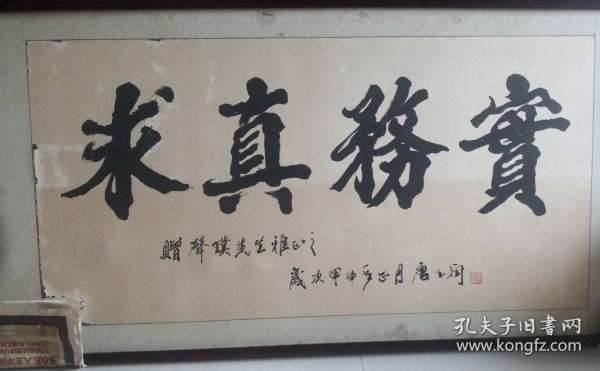 求真務實
贈聲璞先生雅正之
歲次甲申秀正月唐玉润
孔夫子旧书网
www.kongfz.com